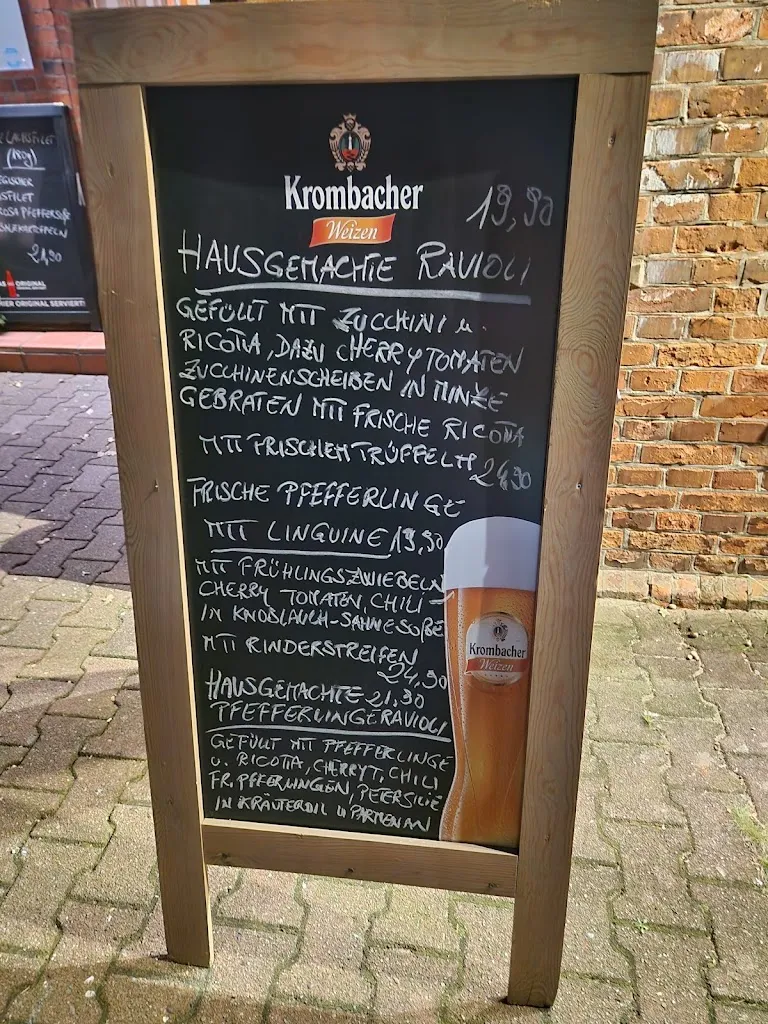 Krombacher
Weizen
19,90
HAUSGEMACHTE RAVIOLI
GEFÜLLT MIT ZUCCHINI u.
RICOTTA, DAZU CHERRYTOMATEN
ZUCCHINENSCHEIBEN IN MINZE
GEBRATEN MIT FRISCHE RICOTTA
MIT FRISCHEM TRÜFFELN 24,90
FRISCHE PFEFFERLINGE
MIT LINGUINE 19,90
MIT FRÜHLINGSZWIEBELN
CHERRY TOMATEN, CHILI
IN KNOBLAUCH-SAHNESOßE
MIT RINDERSTREIFEN
24,90
HAUSGEMACHTE 21,90
PFEFFERLINGERAVIOLI
GEFÜLLT MIT PFEFFERLINGE
u. RICOTTA, CHERRYT, CHILI
FR. PFFERLINGEN, PETERSILIE
IN KRÄUTERÖL u PARMESAN
Krombacher
Weizen
LACHSFILET
ROSA PFEFFERSOß
21,90
ORIGINAL
HIER ORIGINAL SERVIERT!